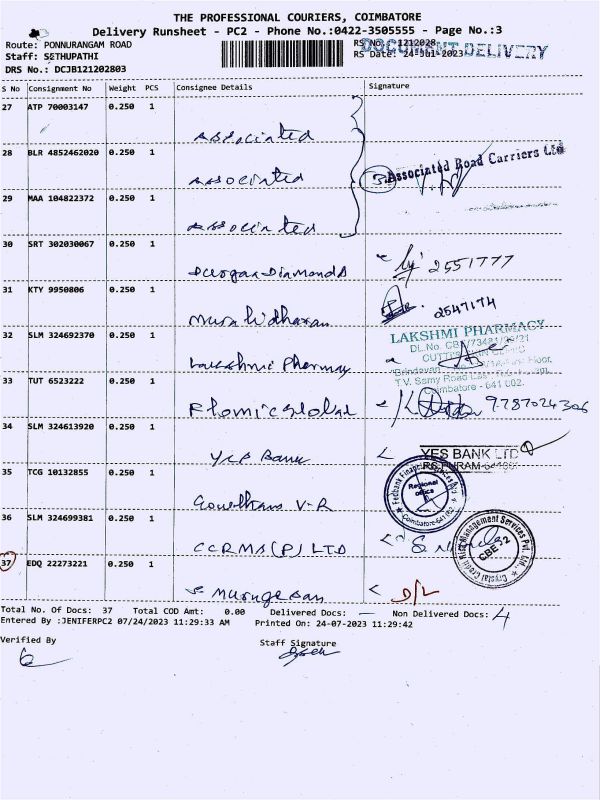 THE PROFESSIONAL COURIERS, COIMBATORE
Delivery Runsheet - PC2 - Phone No.:0422-3505555 - Page No.:3
Route: PONNURANGAM ROAD
RS No.: 1212028
DOCUMENT DELIVERY
Staff: SETHUPATHI
RS Date: 24-Jul-2023
DRS No.: DCJB121202803
S No Consignment No Weight PCS Consignee Details Signature
27 ATP 70003147 0.250 1 Associated
28 BLR 4852462020 0.250 1 Associated
3. Associated Road Carriers Ltd
29 MAA 104822372 0.250 1 Associated
30 SRT 302030067 0.250 1 2551777
31 KTY 9950806 0.250 1 Muralidharan 2547174
32 SLM 324692370 0.250 1 Lakshmi Pharmay
LAKSHMI PHARMACY
T.V. Samy Road
Coimbatore - 641 002.
33 TUT 6523222 0.250 1 9787024306
34 SLM 324613920 0.250 1 Yes Bank
YES BANK LTD
R.S. PURAM
35 TCG 10132855 0.250 1 Gowtham V-R
Regional office
Coimbatore-641 002
36 SLM 324699381 0.250 1 CCRMS (P) LTD
Crystal Credit Risk Management Services Pvt. Ltd.,
CBE-2
37 EDQ 22273221 0.250 1 Murugesan D/L
Total No. Of Docs: 37 Total COD Amt: 0.00 Delivered Docs: — Non Delivered Docs: 4
Entered By :JENIFERPC2 07/24/2023 11:29:33 AM Printed On: 24-07-2023 11:29:42
Verified By Staff Signature